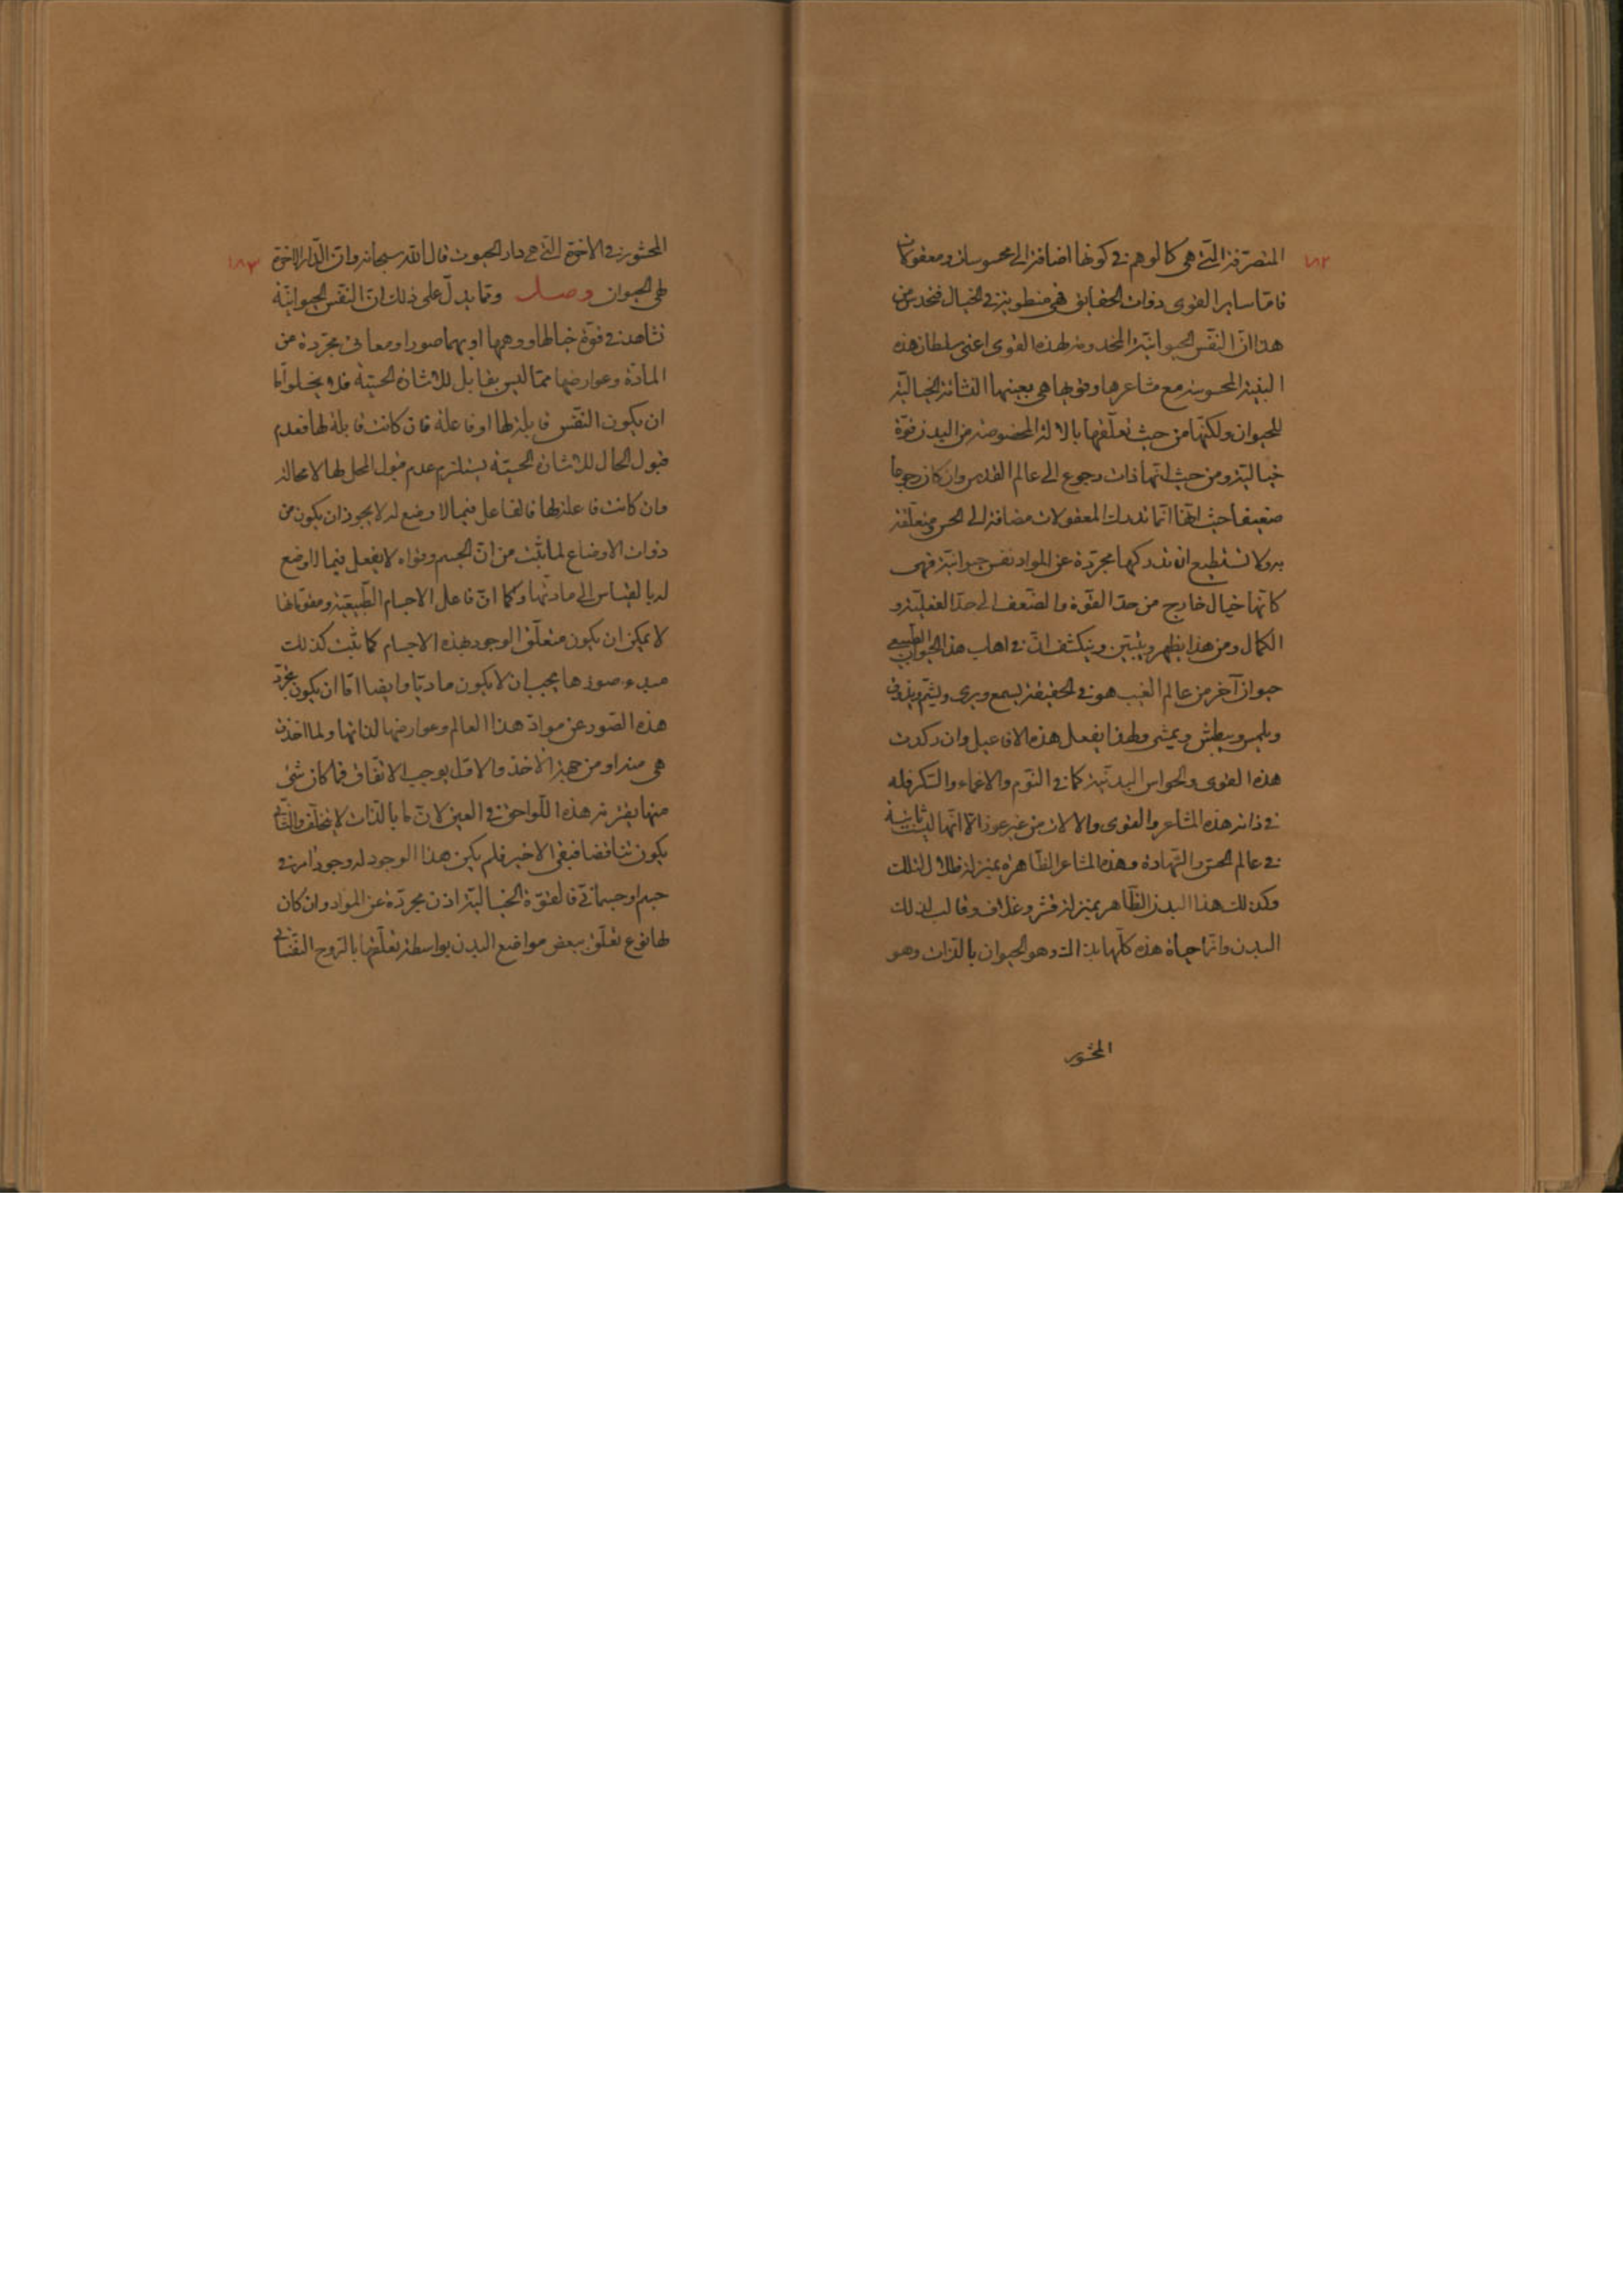 ١٨٢
المتصرّفة الّتي هي كالوهم في كونها اضافة الى محسوسات ومعقولات
فامّا ساير القوى ذوات الحقايق فهي منطوية في الخيال فنحدس من
هذا انّ النّفس الحيوانيّة المخدومة لهذه القوى اعنى سلطان هذه
البنية المحسوسة مع مشاعرها وقويها هي بعينها النشاة الخياليّة
للحيوان ولكنّها من حيث تعلّقها بالالة المخصوصة من البدن قوّة
خياليّة ومن حيث انّها ذات رجوع الى عالم القدس وان كان رجوعا
ضعيفا حيث انّها انّما تدرك المعقولات مضافة الى الحس متعلّقة
به ولا تستطيع ان تدركها مجرّدة عن المواد نفس حيوانيّة فهى
كانّها خيال خارج من حدّ القوّة والضّعف الى حدّ الفعليّة و
الكمال ومن هذا يظهر ويتبيّن وينكشف انّ في اهاب هذا الحيوان الطّبيعي
حيوان آخر من عالم الغيب هو في الحقيقة يسمع ويرى ويشمّ ويذوق
ويلمس ويبطش ويمشى ولهذا يفعل هذه الافاعيل وان ركدت
هذه القوى والحواس البدنيّة كما في النّوم والاغماء والسّكر فله
في ذاته هذه المشاعر والقوى والالات من غير عوز الّا انّها ليست ثابتة
في عالم الحسّ والشّهادة وهذه المشاعر الظّاهرة بمنزلة ظلال لتلك
وكذلك هذا البدن الظّاهر بمنزلة قشر وغلاف وقالب لذلك
البدن وانّما حياة هذه كلّها بذاك وهو الحيوان بالذّات وهو
المحشور
١٨٣
المحشور في الاخرة الّتي هي دار الحيوة قال الله سبحانه وانّ الدّار الاخرة
لهي الحيوان وصل وممّا يدلّ على ذلك انّ النّفس الحيوانيّة
تشاهد في قوّة خيالها ووهمها او بهما صورا ومعاني مجرّدة من
المادّة وعوارضها ممّا ليس بقابل للاشارة الحسيّة فلا يخلوا امّا
ان يكون النّفس قابلة لها او فاعلة فان كانت قابلة لها فعدم
قبول الحال للاشارة الحسيّة يستلزم عدم قبول المحل لها لا محالة
وان كانت فاعلة لها فالفاعل فيما لا وضع له لا يجوز ان يكون من
ذوات الاوضاع لما ثبت من انّ الجسم وقواه لا يفعل فيما لا وضع
له بالقياس الى مادّتها وكما انّ فاعل الاجسام الطّبيعيّة ومقوّماتها
لا يمكن ان يكون متعلّق الوجود بهذه الاجسام كما ثبت كذلك
مبدء صورها يجب ان لا يكون ماديّا وايضا امّا ان يكون تجرّد
هذه الصّور عن موادّ هذا العالم وعوارضها لذاتها او لما اخذت
هي منه او من جهة الاخذ والاوّل يوجب الاتّفاق فما كان شئ
منها يقترنه هذه اللّواحق في العين لانّ ما بالذّات لا يتخلّف والثّاني
يكون تناقضا فبقى الاخير فلم يكن هذا الوجود له وجود امر في
جسم او جسمانيّ فالقوّة الخياليّة اذن مجرّدة عن المواد وان كان
لها نوع تعلّق ببعض مواضع البدن بواسطة تعلّقها بالرّوح النّفسانيّ